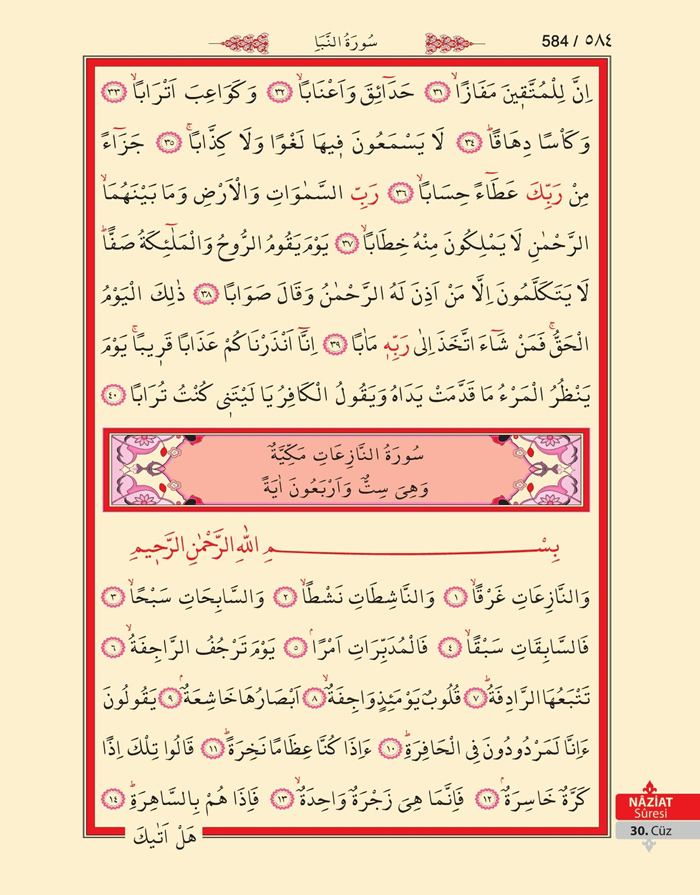 سُورَةُ النَّبَأِ
584 / ٥٨٤
اِنَّ لِلْمُتَّقٖينَ مَفَازًاۙ ﴿٣١﴾ حَدَٓائِقَ وَاَعْنَابًاۙ ﴿٣٢﴾ وَكَوَاعِبَ اَتْرَابًاۙ ﴿٣٣﴾
وَكَأْسًا دِهَاقًاۜ ﴿٣٤﴾ لَا يَسْمَعُونَ فٖيهَا لَغْوًا وَلَا كِذَّابًاۚ ﴿٣٥﴾ جَزَٓاءً
مِنْ رَبِّكَ عَطَٓاءً حِسَابًاۙ ﴿٣٦﴾ رَبِّ السَّمٰوَاتِ وَالْاَرْضِ وَمَا بَيْنَهُمَاۙ
الرَّحْمٰنِ لَا يَمْلِكُونَ مِنْهُ خِطَابًاۚ ﴿٣٧﴾ يَوْمَ يَقُومُ الرُّوحُ وَالْمَلٰٓئِكَةُ صَفًّاۜ
لَا يَتَكَلَّمُونَ اِلَّا مَنْ اَذِنَ لَهُ الرَّحْمٰنُ وَقَالَ صَوَابًا ﴿٣٨﴾ ذٰلِكَ الْيَوْمُ
الْحَقُّۚ فَمَنْ شَٓاءَ اتَّخَذَ اِلٰى رَبِّهٖ مَاٰبًا ﴿٣٩﴾ اِنَّٓا اَنْذَرْنَاكُمْ عَذَابًا قَرٖيبًاۚ يَوْمَ
يَنْظُرُ الْمَرْءُ مَا قَدَّمَتْ يَدَاهُ وَيَقُولُ الْكَافِرُ يَا لَيْتَنٖي كُنْتُ تُرَابًا ﴿٤٠﴾
سُورَةُ النَّازِعَاتِ مَكِّيَّةٌ
وَهِيَ سِتٌّ وَاَرْبَعُونَ اٰيَةً
بِسْمِ اللّٰهِ الرَّحْمٰنِ الرَّحٖيمِ
وَالنَّازِعَاتِ غَرْقًاۙ ﴿١﴾ وَالنَّاشِطَاتِ نَشْطًاۙ ﴿٢﴾ وَالسَّابِحَاتِ سَبْحًاۙ ﴿٣﴾
فَالسَّابِقَاتِ سَبْقًاۙ ﴿٤﴾ فَالْمُدَبِّرَاتِ اَمْرًاۢ ﴿٥﴾ يَوْمَ تَرْجُفُ الرَّاجِفَةُۙ ﴿٦﴾
تَتْبَعُهَا الرَّادِفَةُۜ ﴿٧﴾ قُلُوبٌ يَوْمَئِذٍ وَاجِفَةٌۙ ﴿٨﴾ اَبْصَارُهَا خَاشِعَةٌۢ ﴿٩﴾ يَقُولُونَ
ءَاِنَّا لَمَرْدُودُونَ فِي الْحَافِرَةِۜ ﴿١٠﴾ ءَاِذَا كُنَّا عِظَامًا نَخِرَةًۜ ﴿١١﴾ قَالُوا تِلْكَ اِذًا
كَرَّةٌ خَاسِرَةٌۢ ﴿١٢﴾ فَاِنَّمَا هِيَ زَجْرَةٌ وَاحِدَةٌۙ ﴿١٣﴾ فَاِذَا هُمْ بِالسَّاهِرَةِۜ ﴿١٤﴾
هَلْ اَتٰيكَ
NÂZİAT
Sûresi
30. Cüz